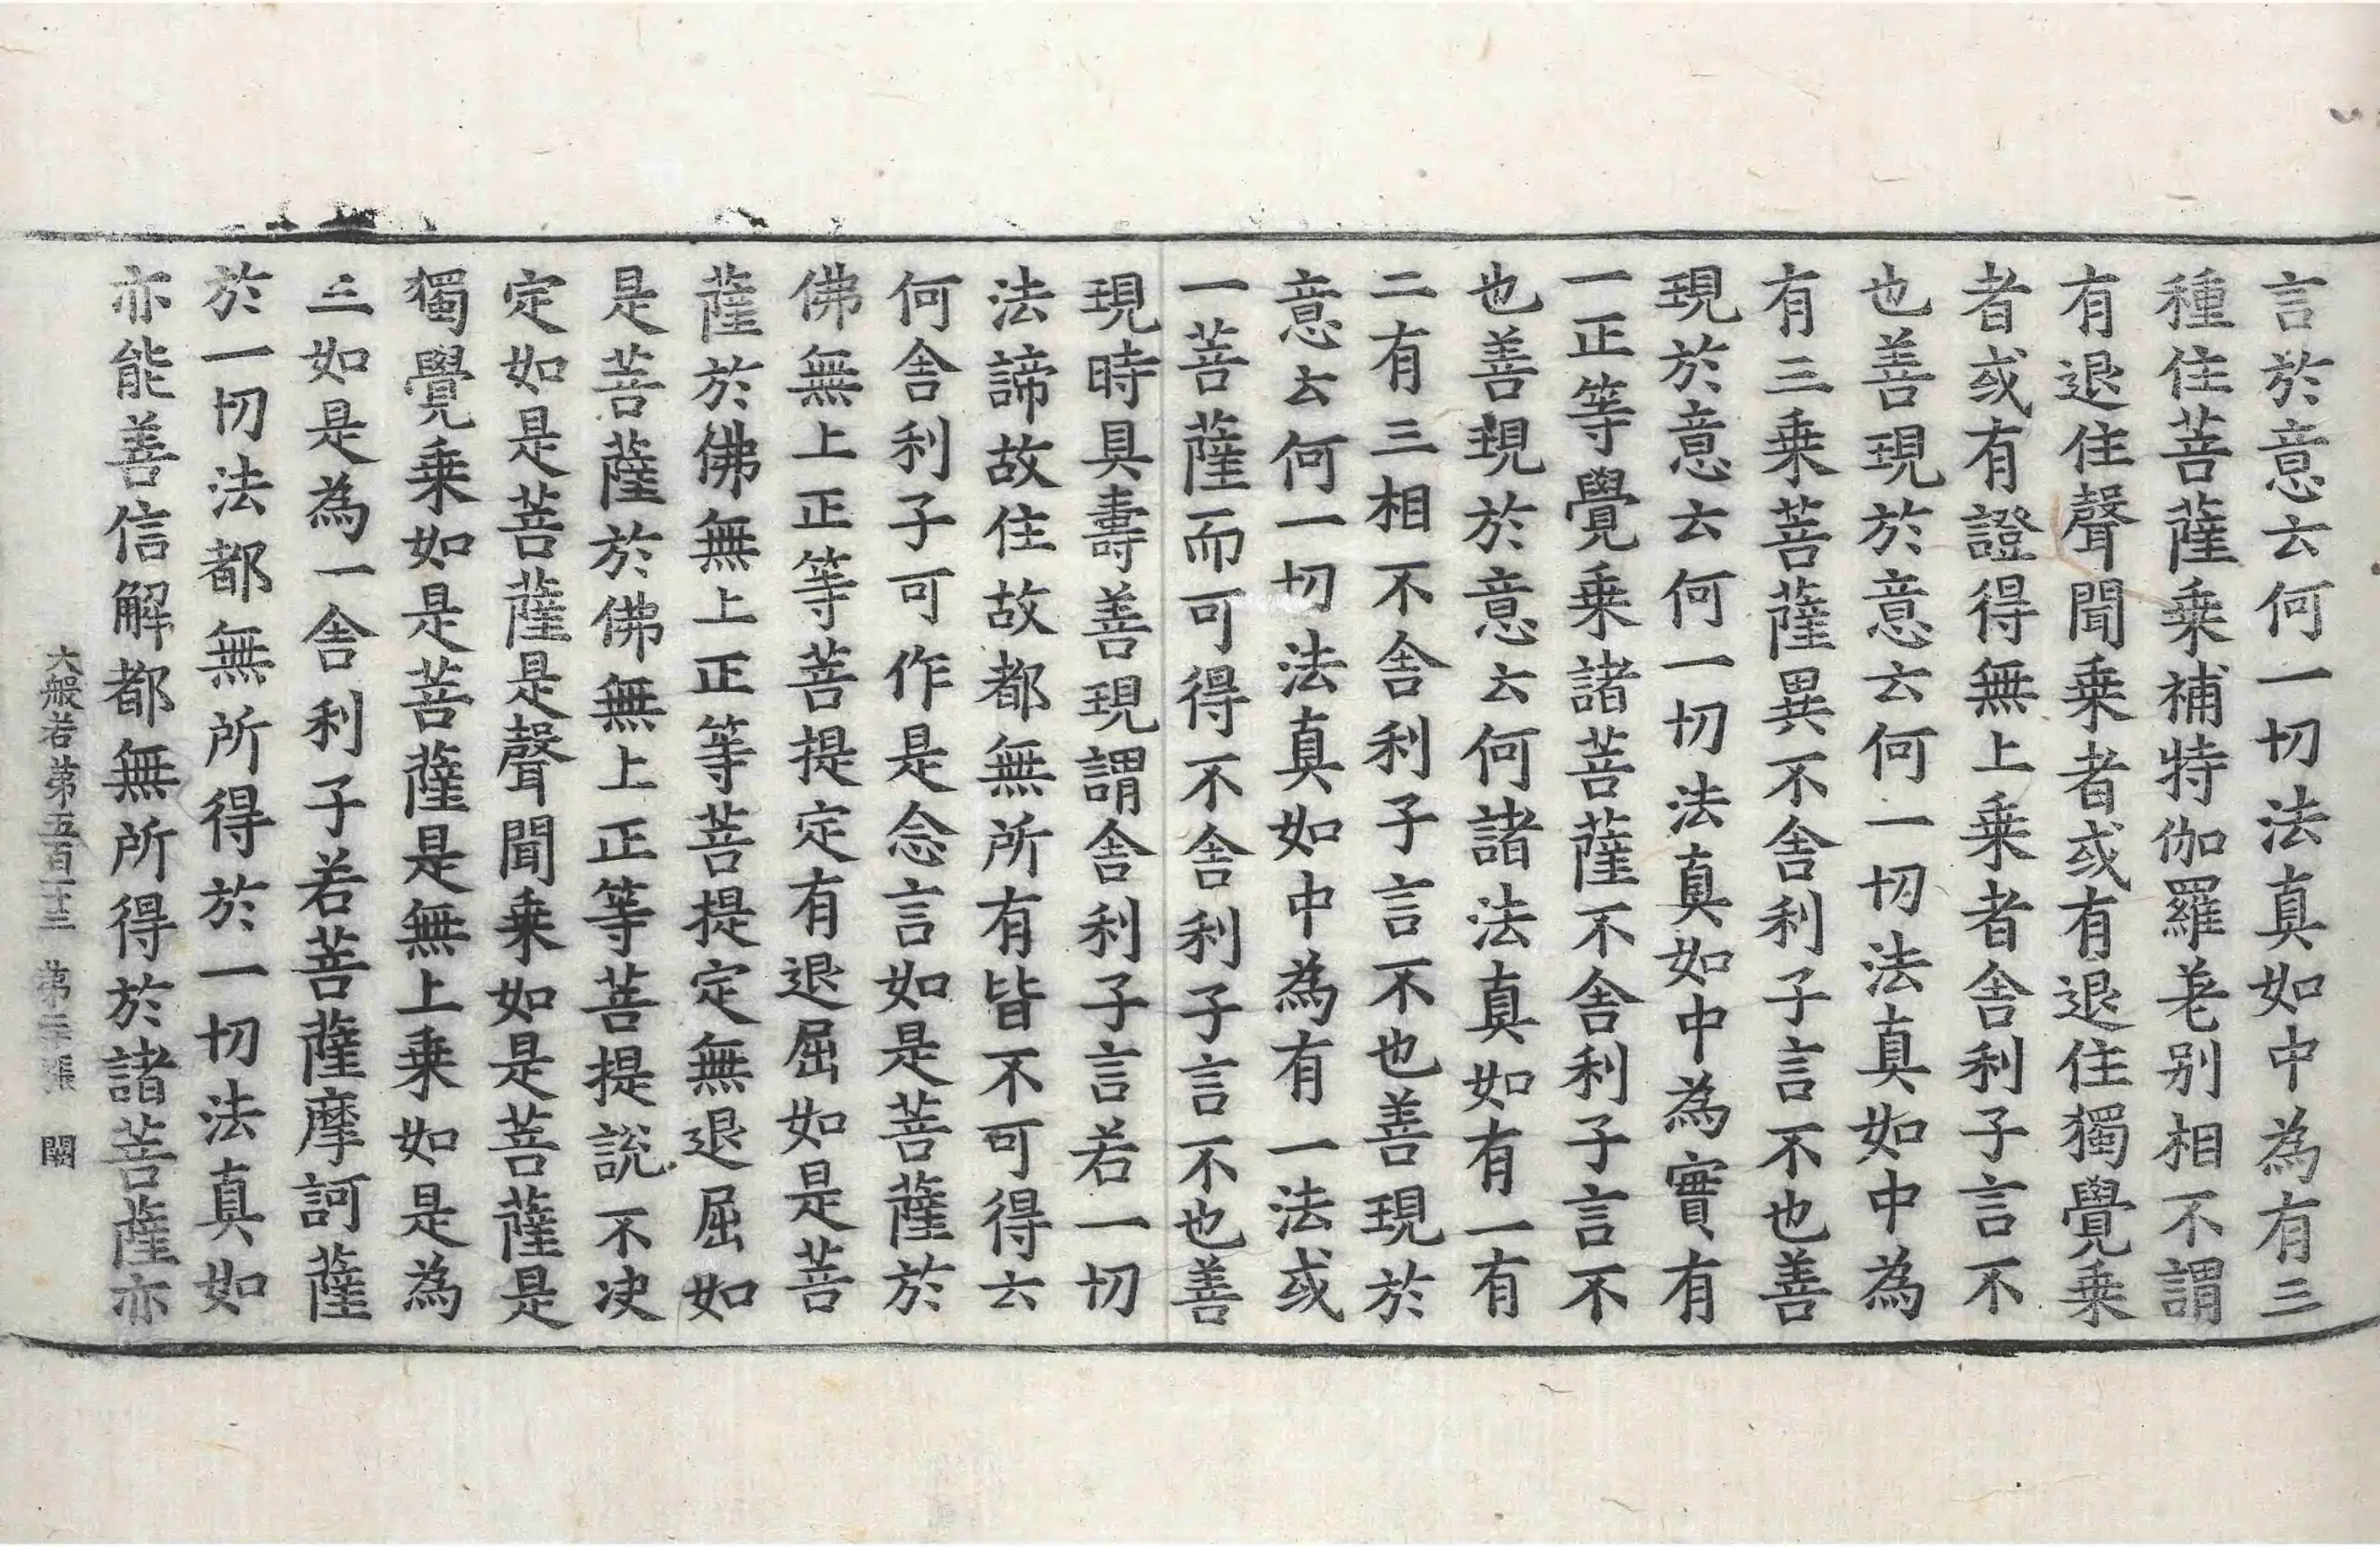 言於意云何一切法真如中為有三
種住菩薩乗補特伽羅差别相不謂
有退住聲聞乗者或有退住獨覺乗
者或有證得無上乗者舎利子言不
也善現於意云何一切法真如中為
有三乗菩薩異不舎利子言不也善
現於意云何一切法真如中為實有
一正等覺乗諸菩薩不舎利子言不
也善現於意云何諸法真如有一有
二有三相不舎利子言不也善現於
意云何一切法真如中為有一法或
一菩薩而可得不舎利子言不也善
現時具壽善現謂舎利子言若一切
法諦故住故都無所有皆不可得云
何舎利子可作是念言如是菩薩於
佛無上正等菩提定有退屈如是菩
薩於佛無上正等菩提定無退屈如
是菩薩於佛無上正等菩提說不决
定如是菩薩是聲聞乗如是菩薩是
獨覺乗如是菩薩是無上乗如是為
三如是為一舎利子若菩薩摩訶薩
於一切法都無所得於一切法真如
亦能善信解都無所得於諸菩薩亦
大般若第五百十三 第 張 闕